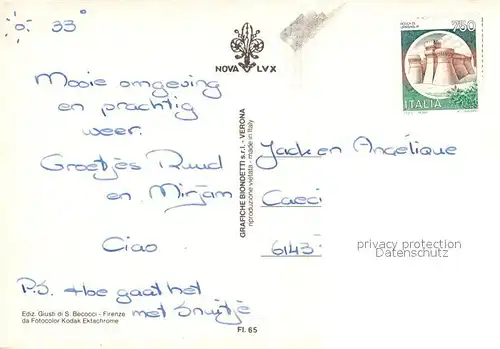 33°
Mooie omgeving
en prachtig
weer.
Groetjes Ruud
en Mirjam
Ciao
P.S. Hoe gaat het
met Snuitje
Ediz. Giusti di S. Becocci - Firenze
da Fotocolor Kodak Ektachrome
NOVA LVX
GRAFICHE BIONDETTI s.r.l. - VERONA
riproduzione vietata - made in Italy
FI. 65
750
ITALIA
Jack en Angélique
Caeci
6143
privacy protection
Datenschutz